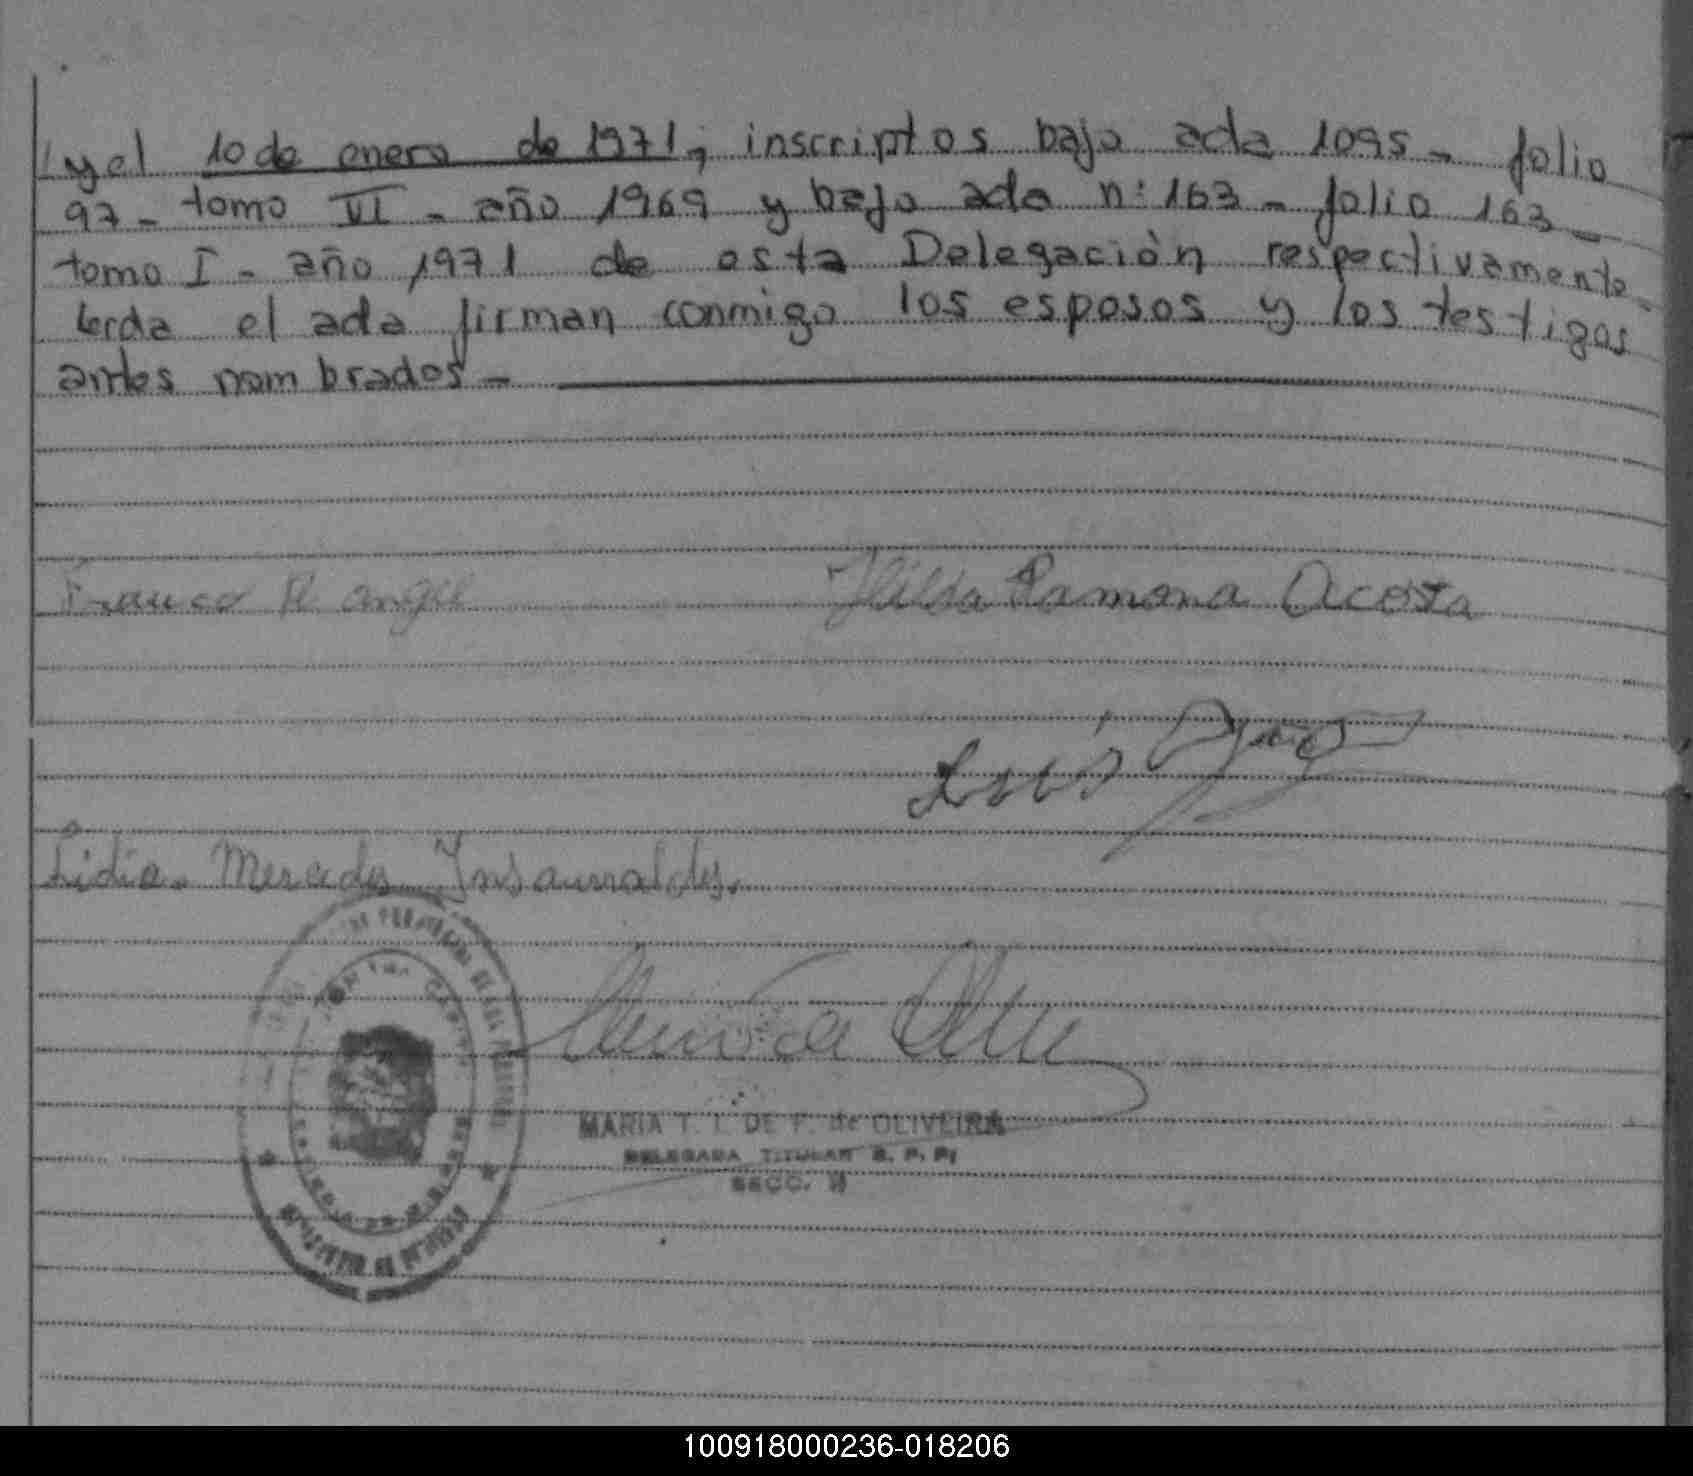 y el 10 de enero de 1971, inscriptos bajo acta 1095 - folio
97 - tomo VI - año 1969 y bajo acta n: 163 - folio 163 -
tomo I - año 1971 de esta Delegación respectivamente.
Leida el acta firman conmigo los esposos y los testigos
antes nombrados -
Franco R angel
Hilda Ramona Acosta
Luis
Lidia. Mercedes Insaurralde.
MARIA T. I. DE F. de OLIVEIRA
DELEGADA TITULAR R. P. P.
SECC.
100918000236-018206